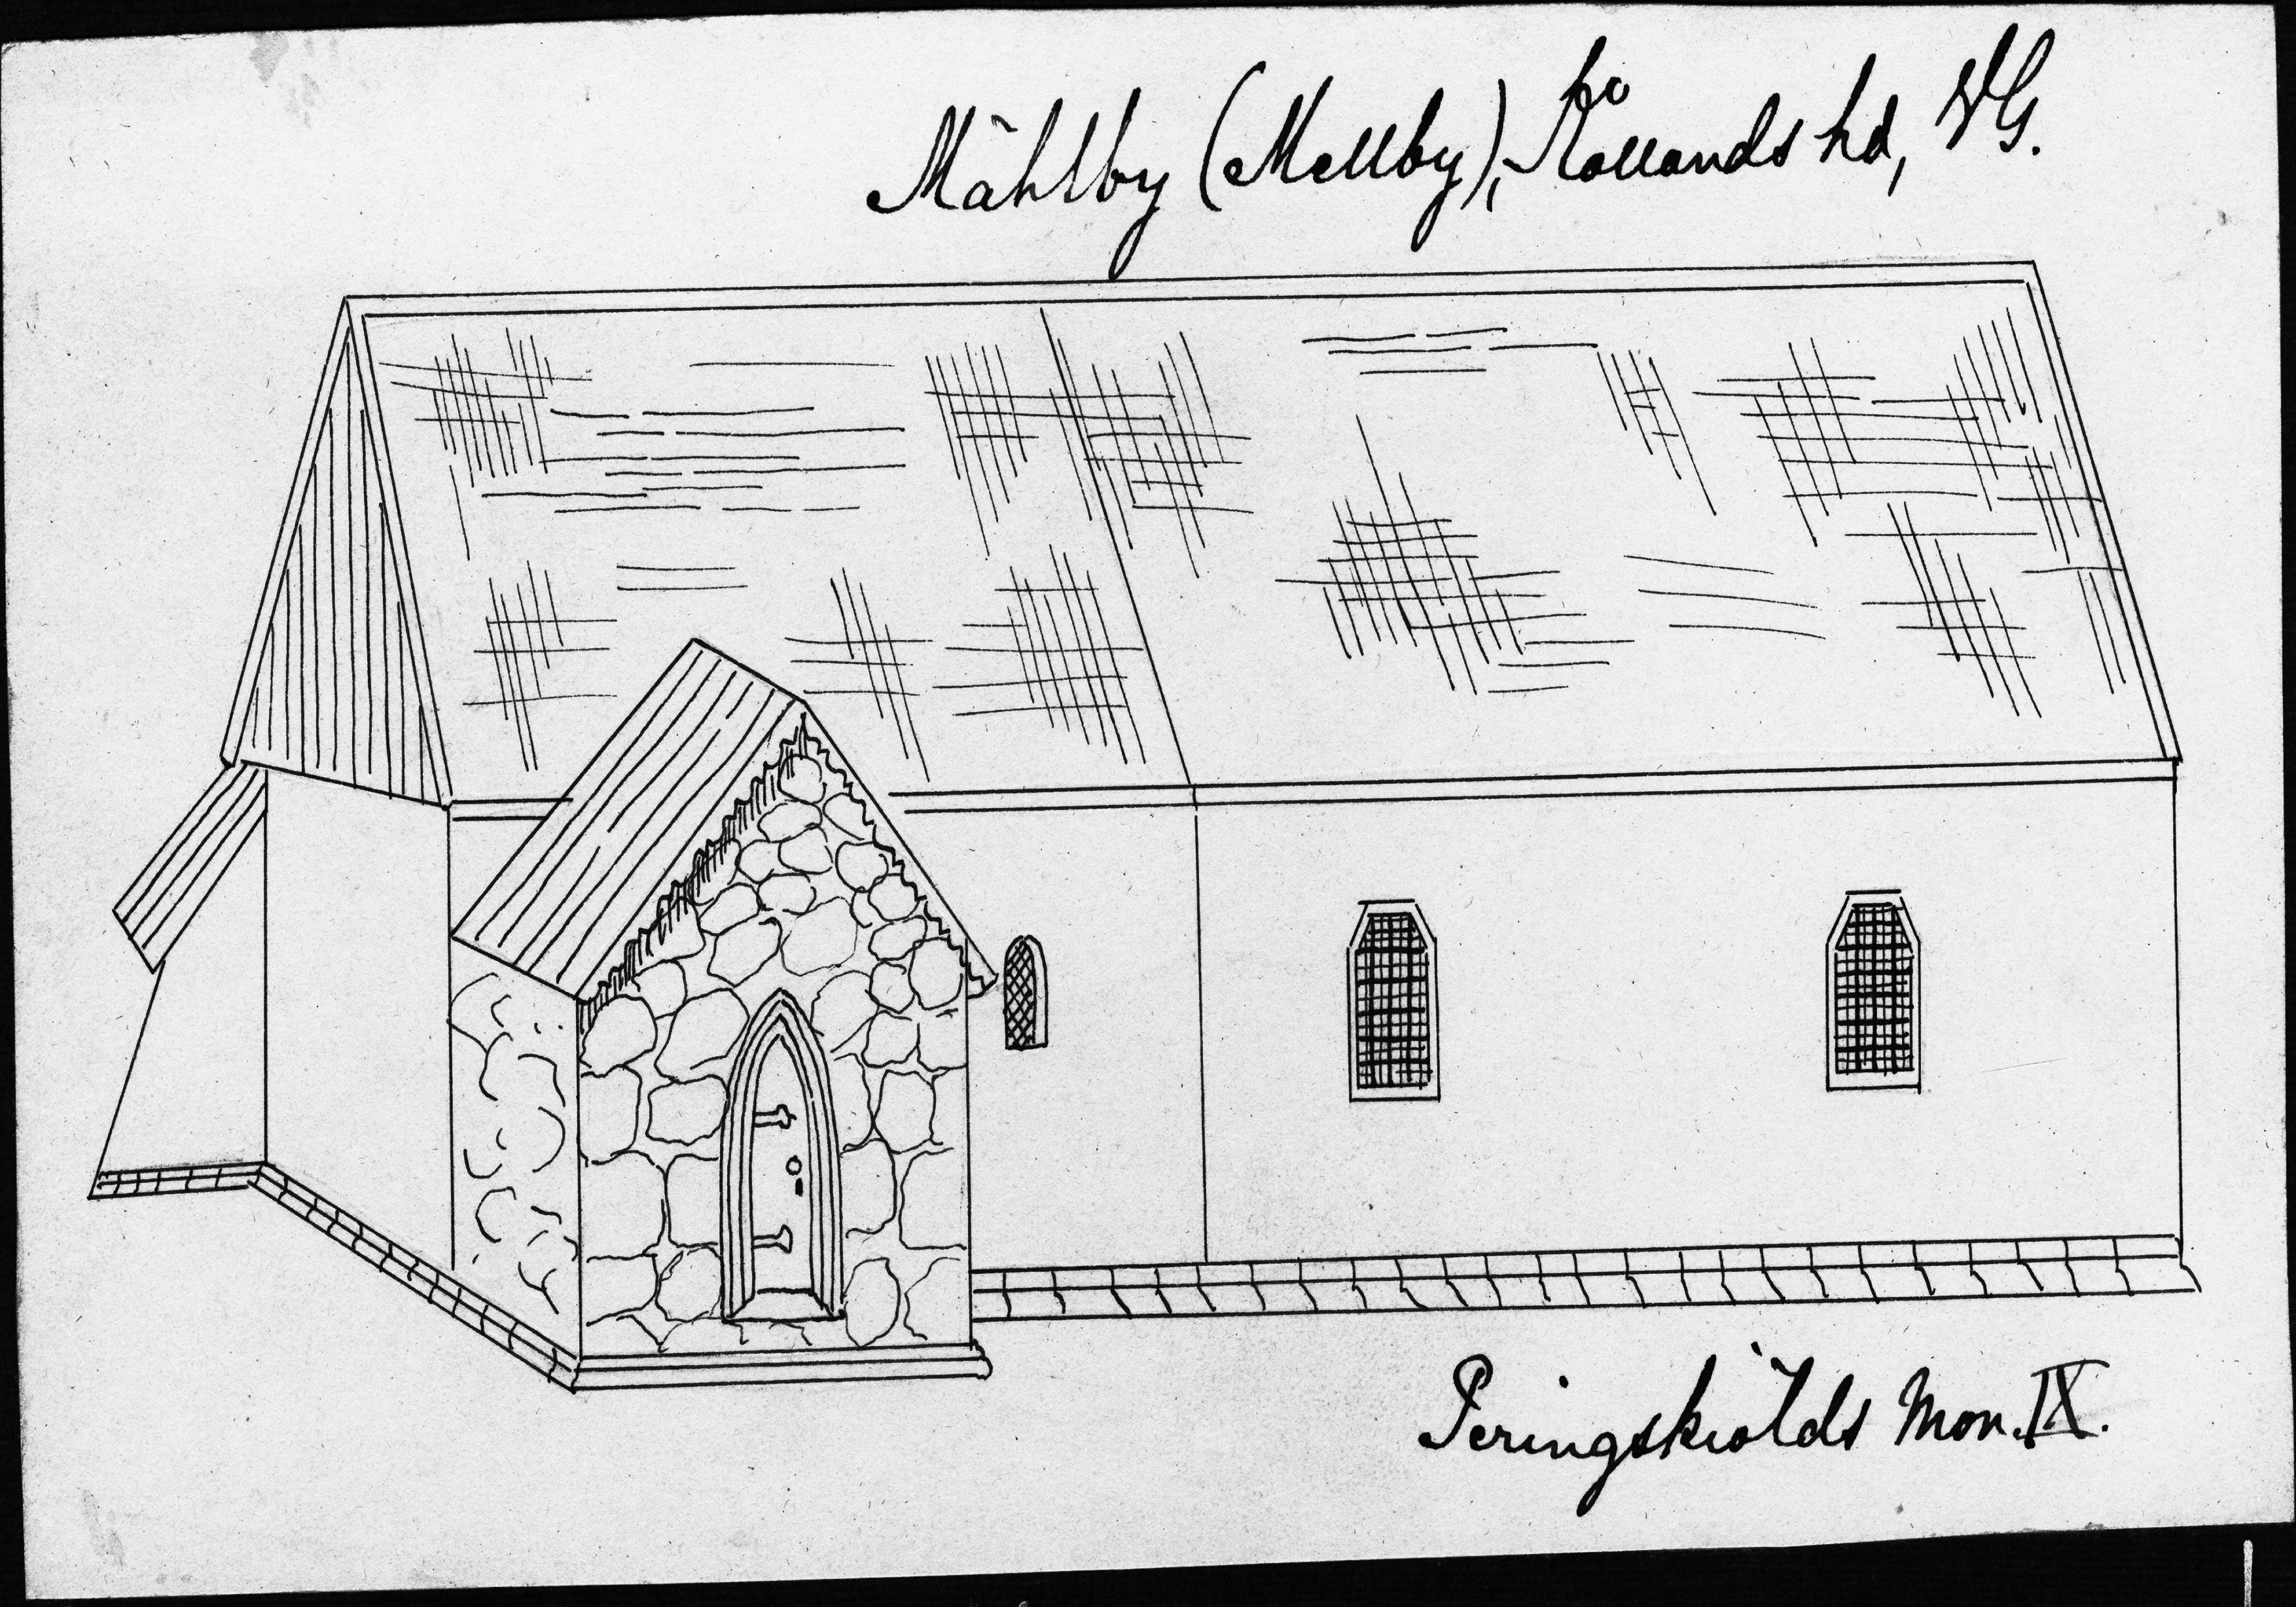 Mählby (Mellby), Kållands hd, VG.
Peringskiölds Mon. IX.